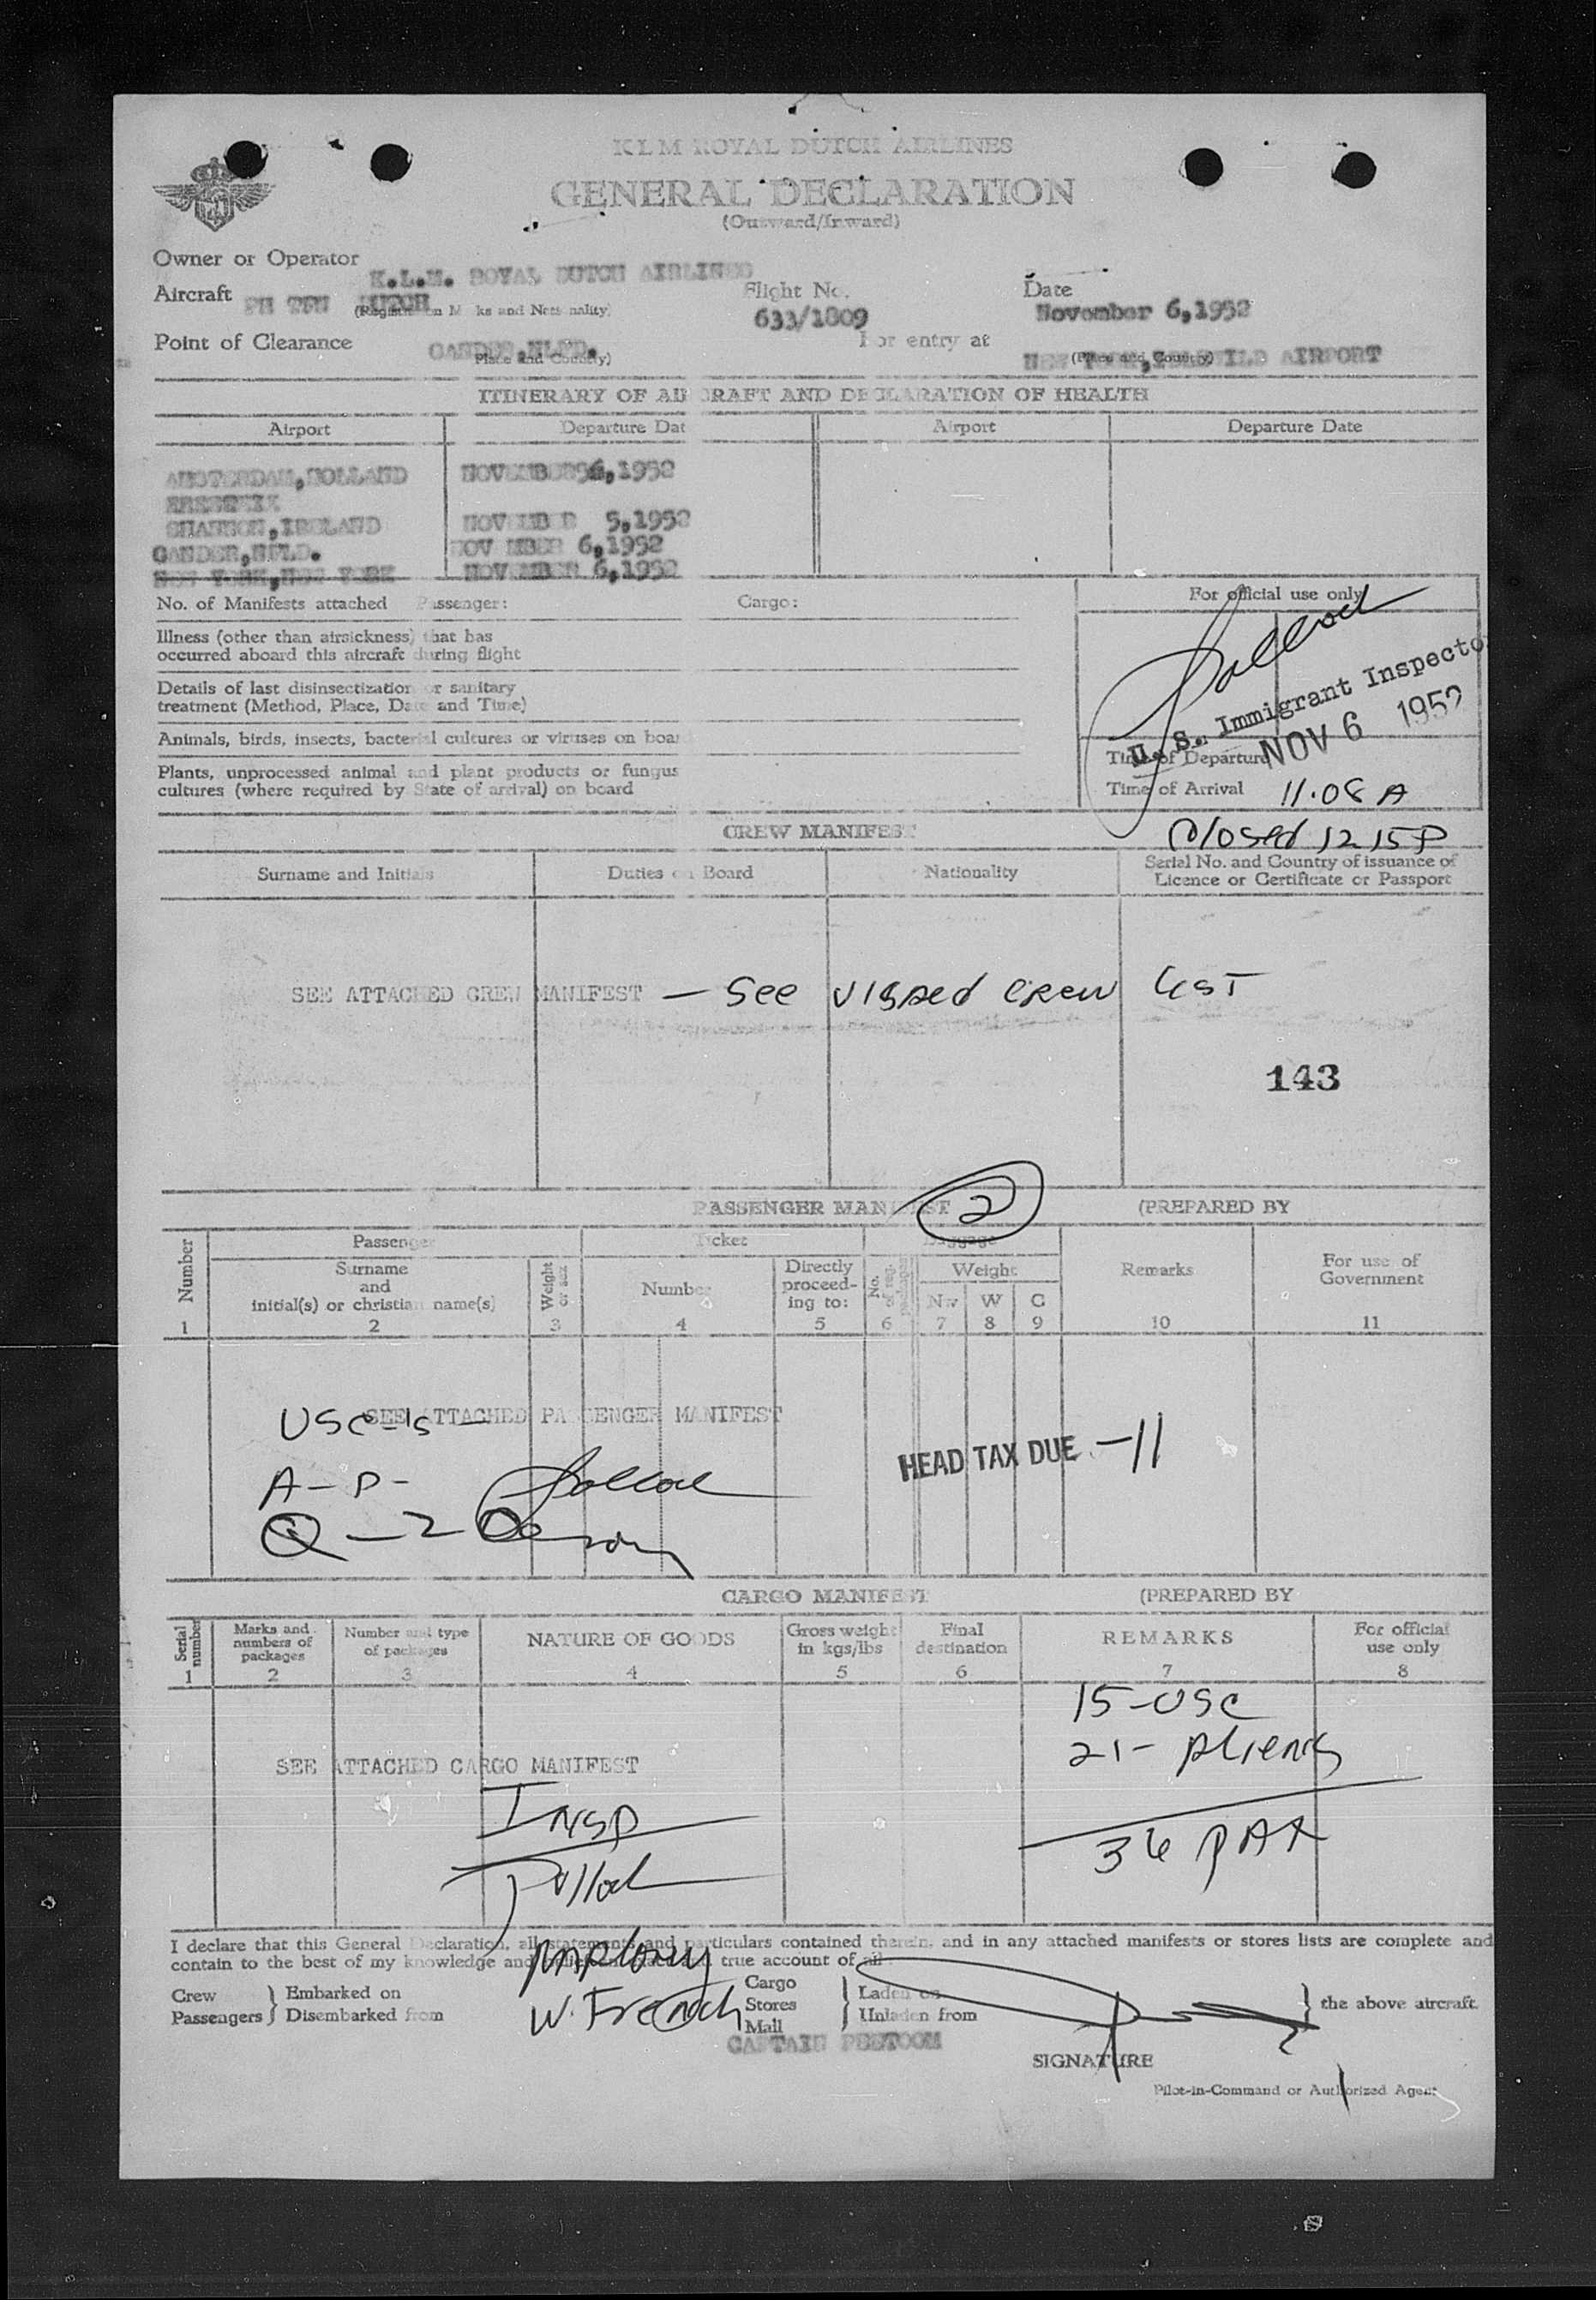 KLM ROYAL DUTCH AIRLINES
GENERAL DECLARATION
(Outward/Inward)
Owner or Operator K.L.M. ROYAL DUTCH AIRLINES
Aircraft DUTCH (Registration Marks and Nationality) Flight No. 633/1809 Date November 6,1952
Point of Clearance GANDER,NFLD. (Place and Country) For entry at (Place and Country) AIRPORT
ITINERARY OF AIRCRAFT AND DECLARATION OF HEALTH
Airport Departure Date Airport Departure Date
AMSTERDAM,HOLLAND NOVEMBER 1952
SHANNON,IRELAND NOVEMBER 5,1952
GANDER,NFLD. NOVEMBER 6,1952
NEW YORK,NEW YORK NOVEMBER 6,1952
No. of Manifests attached Passenger: Cargo:
For official use only
Illness (other than airsickness) that has
occurred aboard this aircraft during flight
Details of last disinsectization or sanitary
treatment (Method, Place, Date and Time)
Animals, birds, insects, bacterial cultures or viruses on board
Plants, unprocessed animal and plant products or fungus
cultures (where required by State of arrival) on board
U. S. Immigrant Inspector
NOV 6 1952
Time of Departure
Time of Arrival 11.08 A
Closed 12 15 P
CREW MANIFEST
Surname and Initials Duties on Board Nationality Serial No. and Country of issuance of
Licence or Certificate or Passport
SEE ATTACHED CREW MANIFEST — See visaed crew List
143
PASSENGER MANIFEST 2 (PREPARED BY
Number Passenger Ticket Baggage
Surname
and
initial(s) or christian name(s)
Weight or sex
Number
Directly
proceed-
ing to:
No. of reg. packages
Weight
N W C
Remarks
For use of
Government
1 2 3 4 5 6 7 8 9 10 11
SEE ATTACHED PASSENGER MANIFEST
USC-15-
HEAD TAX DUE -11
A-P-
Q-2
CARGO MANIFEST (PREPARED BY
Serial number
Marks and
numbers of
packages
Number and type
of packages
NATURE OF GOODS
Gross weight
in kgs/lbs
Final
destination
REMARKS
For official
use only
1 2 3 4 5 6 7 8
15-USC
21- Aliens
SEE ATTACHED CARGO MANIFEST
36 PAX
INSP
Pollock
I declare that this General Declaration, all statements and particulars contained therein, and in any attached manifests or stores lists are complete and
contain to the best of my knowledge and true account of all
Crew
Passengers
Embarked on
Disembarked from
W. French
Cargo
Stores
Mail
Laden on
Unladen from
the above aircraft.
CAPTAIN PEETOOM
SIGNATURE
Pilot-in-Command or Authorized Agent